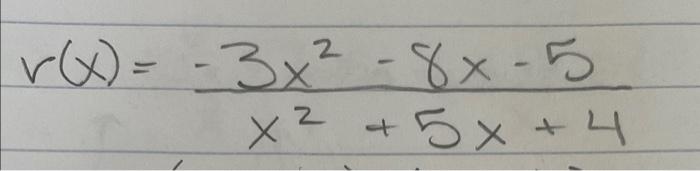 r(x) = -3x² - 8x - 5
x² + 5x + 4